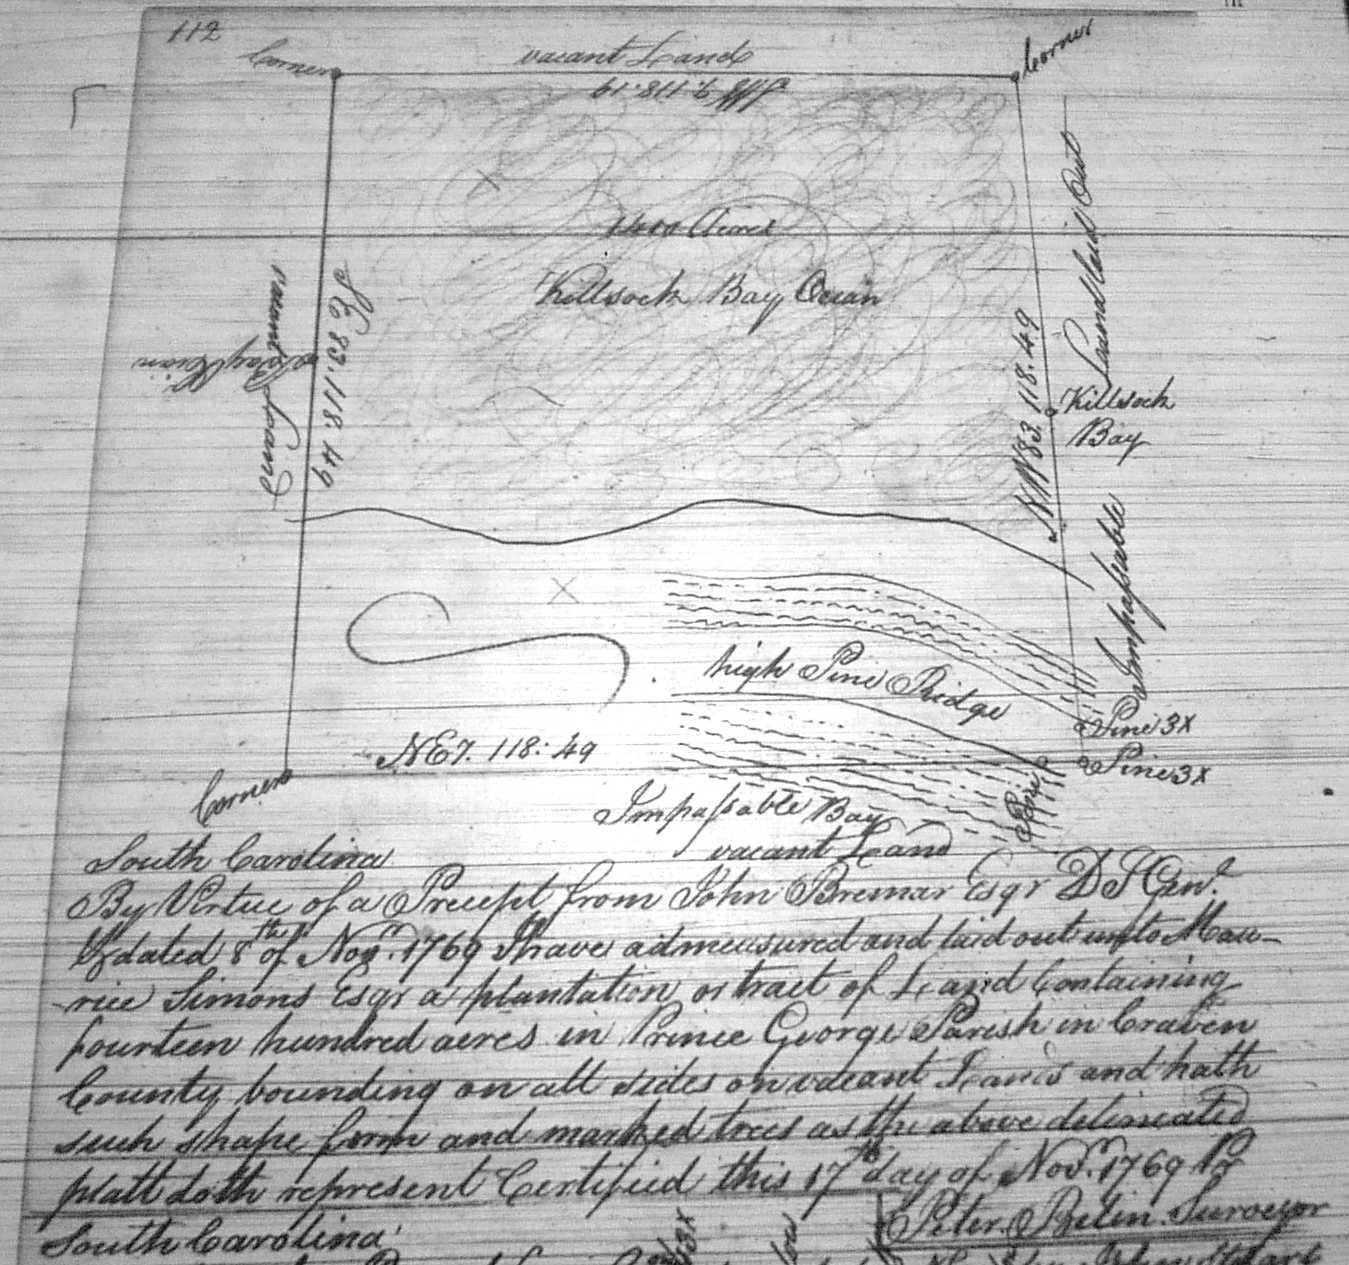 112
Corner
vacant Land
Corner
118.49
1400 Acres
Killsock Bay Ocian
vacant Land
SE 83. 118. 49
NW 83. 118. 49
Land laid Out
Killsock
Bay
Impassable
high Pine Ridge
Pine 3x
Pine 3x
Pine
NE 7. 118: 49
Corner
Impassable Bay
vacant Land
South Carolina
By Virtue of a Precept from John Bremar Esqr D S Genl.
dated 8th of Novr. 1769 I have admeasured and laid out unto Mau-
-rice Simons Esqr a plantation or tract of Land Containing
fourteen hundred acres in Prince George Parish in Craven
County bounding on all sides on vacant Lands and hath
such shape form and marked trees as the above delineated
platt doth represent Certified this 17th day of Novr. 1769 Pr
Peter Belin Surveyor
South Carolina